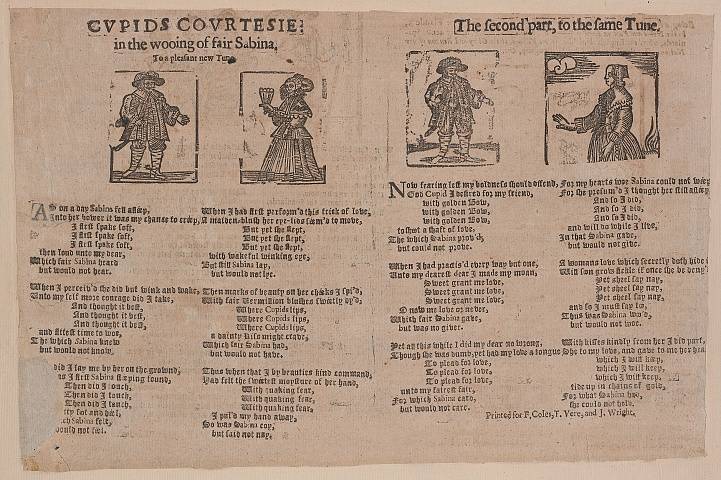 CVPIDS COVRTESIE:
in the wooing of fair Sabina,
To a pleasant new Tune
AS on a day Sabina fell asleep,
Into her bower it was my chance to creep,
I first spake soft,
I first spake soft,
I first spake soft,
then loud unto my dear,
Which fair Sabina heard
but would not hear.
When I perceiv'd she did but wink and wake,
Unto my self more courage did I take,
And thought it best,
And thought it best,
And thought it best,
and fittest time to woo,
The which Sabina knew
but would not know.
did I lay me by her on the ground,
as I first Sabina sleeping found,
Then did I touch,
Then did I touch,
Then did I touch,
foot and heel,
Sabina felt,
would not feel.
When I had first perform'd this trick of love,
A maiden-blush her eye-lids seem'd to move,
But yet she slept,
But yet she slept,
But yet she slept,
with wakeful winking eye,
But still Sabina lay,
but would not lye.
Then marks of beauty on her cheeks I spi'd,
With fair Vermillion blushes sweetly dy'd,
Where Cupids lips,
Where Cupids lips,
Where Cupids lips,
a dainty kiss might crave,
Which fair Sabina had,
but would not have.
Thus when that I by beauties kind command,
Had felt the sweetest moysture of her hand,
With quaking fear,
With quaking fear,
With quaking fear,
I pul'd my hand away,
So was Sabina coy,
but said not nay.
The second part, to the same Tune,
NOw fearing lest my boldness should offend,
God Cupid I desired for my friend,
with golden Bow,
with golden Bow,
with golden Bow,
to shoot a shaft of love,
The which Sabina prov'd,
but could not prove.
When I had practis'd every way but one,
Unto my dearest dear I made my moan,
Sweet grant me love,
Sweet grant me love,
Sweet grant me love,
O now me love or never,
Which fair Sabina gave,
but was no giver.
Yet all this while I did my dear no wrong,
Though she was dumb, yet had my love a tongue
To plead for love,
To plead for love,
To plead for love,
unto my fairest fair,
For which Sabina card,
but would not care.
For my hearts woe Sabina could not weep
For she presum'd I thought her still asleep,
And so I did,
And so I did,
And so I did,
and will do while I live,
In that Sabina gave,
but would not give.
A womans love which secretly doth hide
Will soon grow fickle if once she be deny'd
Yet shee'l say nay,
Yet shee'l say nay,
Yet shee'l say nay,
and so I must say too,
Thus was Sabina woo'd,
but would not woo.
With kisses kindly from her I did part,
She to my love, and gave to me her heart
which I will keep,
which I will keep,
which I will keep,
tide up in chains of gold,
For what Sabina had,
she could not hold.
Printed for F, Coles, T. Vere, and J. Wright,